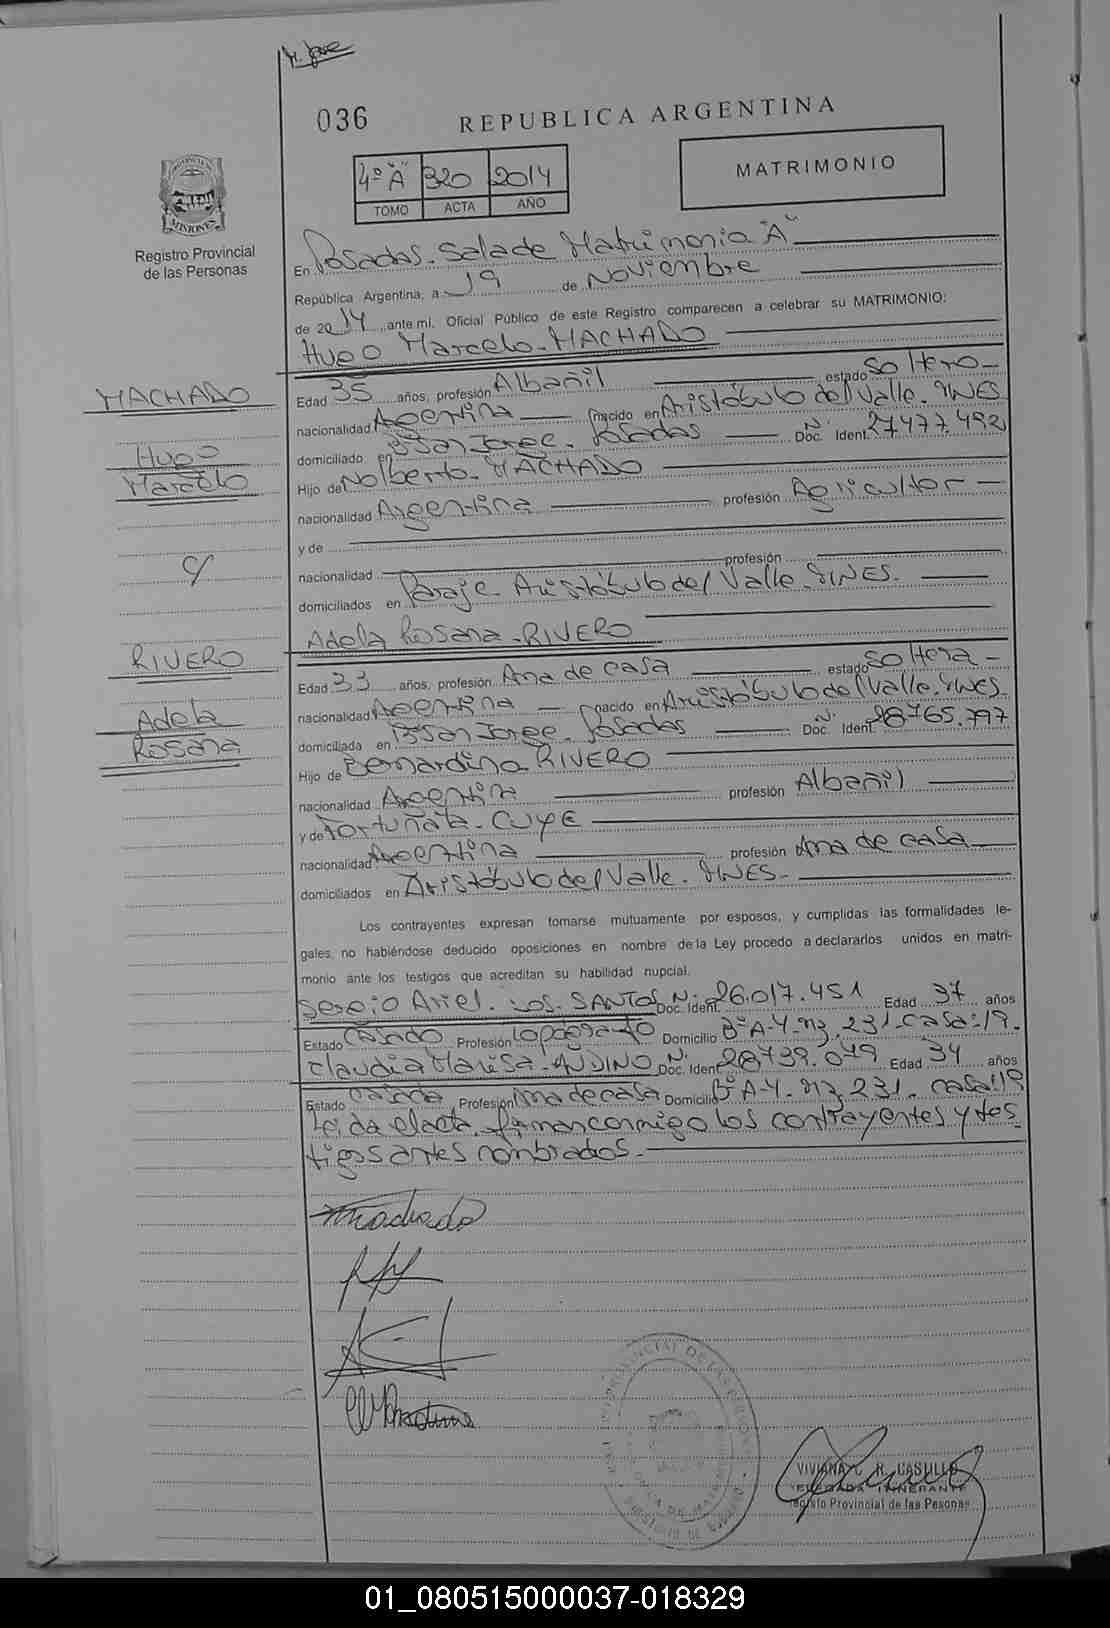 036
REPUBLICA ARGENTINA
4º "A" 320 2014
TOMO ACTA AÑO
MATRIMONIO
MISIONES
Registro Provincial
de las Personas
En Posadas. Sala de Matrimonio "A"
República Argentina, a 19 de Noviembre
de 2014 ante mi, Oficial Público de este Registro comparecen a celebrar su MATRIMONIO:
Hugo Marcelo. MACHADO
MACHADO
Hugo
Marcelo
c/
RIVERO
Adela
Rosana
Edad 35 años, profesión Albañil estado soltero
nacionalidad Argentina nacido en Aristóbulo del Valle. MNES
domiciliado en Bº San Jorge. Posadas Doc. Ident. Nº 27.477.492
Hijo de Nolberto. MACHADO
nacionalidad Argentina profesión Agricultor
y de
nacionalidad profesión
domiciliados en Paraje Aristóbulo del Valle. MNES.
Adela Rosana. RIVERO
Edad 33 años, profesión Ama de casa estado soltera
nacionalidad Argentina nacido en Aristóbulo del Valle. MNES.
domiciliada en Bº San Jorge. Posadas Doc. Ident. Nº 28.765.797
Hijo de Bernardino RIVERO
nacionalidad Argentina profesión Albañil
y de Fortunata. CUYE
nacionalidad Argentina profesión Ama de casa
domiciliados en Aristóbulo del Valle. MNES.
Los contrayentes expresan tomarse mutuamente por esposos, y cumplidas las formalidades le-
gales, no habiéndose deducido oposiciones en nombre de la Ley procedo a declararlos unidos en matri-
monio ante los testigos que acreditan su habilidad nupcial.
Sergio Ariel. DOS. SANTOS Doc. Ident. Nº 26.017.451 Edad 37 años
Estado Casado Profesión Domicilio Bº A-4. mz. 231. casa: 19.
Claudia Marisa. ANDINO Doc. Ident. Nº 28.739.079 Edad 34 años
Estado Casada Profesión Ama de casa Domicilio Bº A-4. mz. 231. casa: 19
Leída el acta, firman conmigo los contrayentes y tes
tigos antes nombrados.
Machado
VIVIANA C. R. CASTILLO
DELEGADA ITINERANTE
Registro Provincial de las Pesonas
01_080515000037-018329